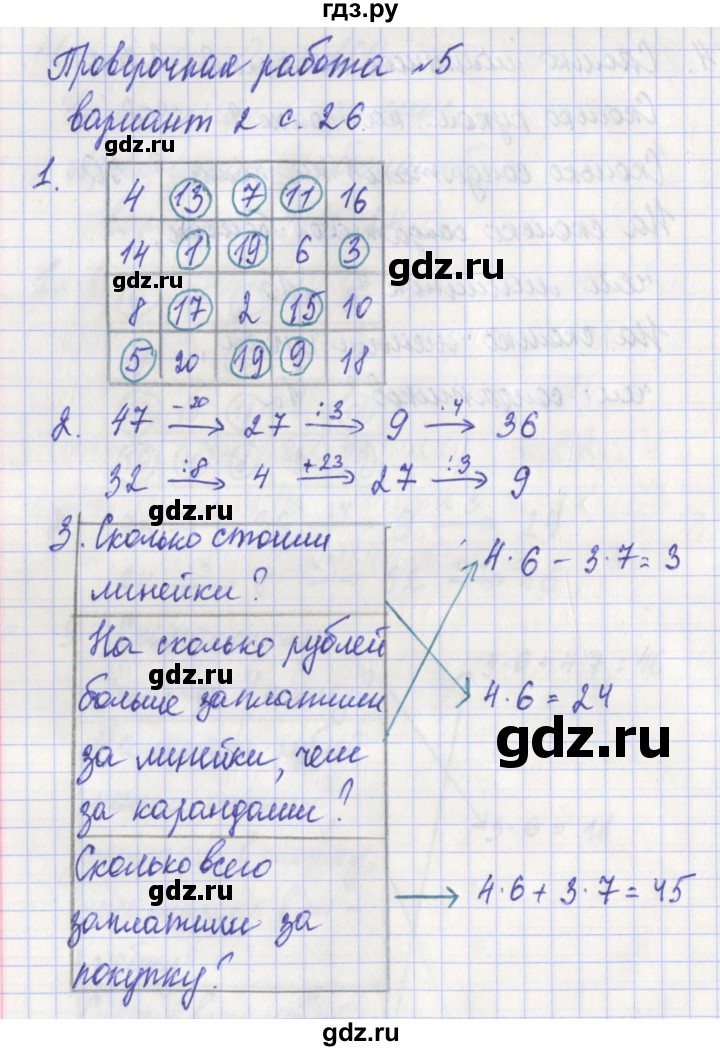 гдз.ру
Проверочная работа №5
вариант 2 с. 26.
gdz.ru
1.
4 13 7 11 16
14 1 19 6 3
gdz.ru
gdz.ru
8 17 2 15 10
5 20 19 9 18
gdz.ru
2. 47 −20 → 27 :3 → 9 ·4 → 36
32 :8 → 4 +23 → 27 :3 → 9
gdz.ru
3. Сколько стоили
линейки?
4·6 − 3·7 = 3
На сколько рублей
gdz.ru
больше заплатили
за линейки, чем
за карандаши?
4·6 = 24
gdz.ru
Сколько всего
gdz.ru
заплатили за
покупку?
4·6 + 3·7 = 45
gdz.ru
gdz.ru